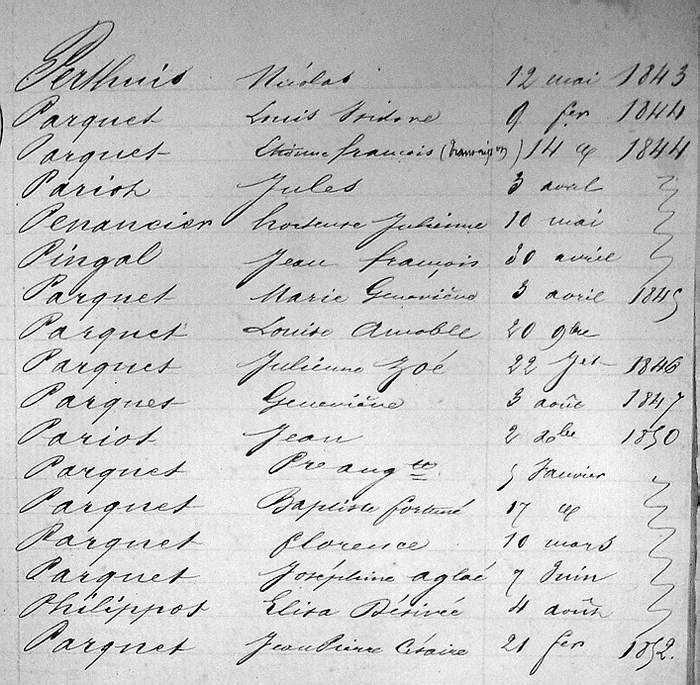 Perthuis Nicolas 12 mai 1843
Parquet Louis Isidore 9 fer 1844
Parquet Etienne francois ( ) 14 d° 1844
Pariot Jules 3 avril "
Penancier hortense Julienne 10 mai "
Pingal Jean francois 30 avril "
Parquet Marie Geneviève 3 avril 1845
Parquet Louise Amable 20 9bre
Parquet Julienne Zoé 22 Jet 1846
Parquet Geneviève 3 août 1847
Pariot Jean 2 Xbe 1850
Parquet Pre augte 5 Janvier "
Parquet Baptiste fortuné 17 d° "
Parquet florence 10 mars "
Parquet Joséphine aglaé 7 Juin "
Philippot Elisa Désirée 4 août "
Parquet Jean Pierre Césaire 21 fer 1852.